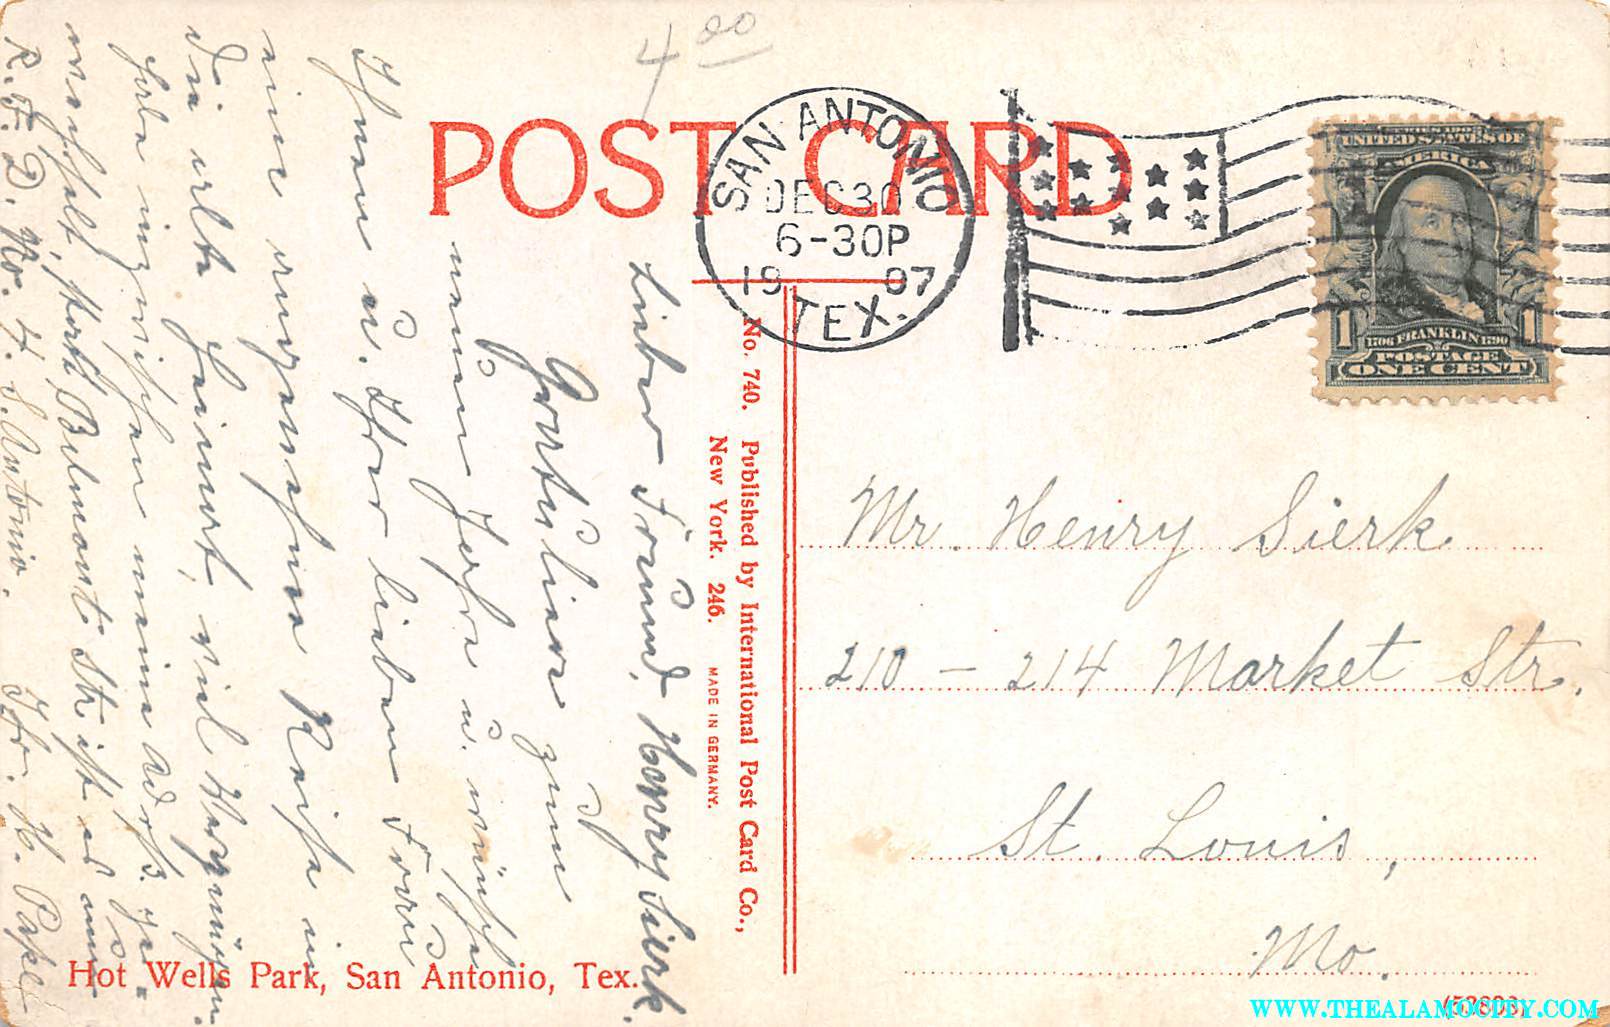 4 00
POST CARD
SAN ANTONIO
DEC 30
6-30P
1907
TEX.
UNITED STATES OF
AMERICA
1706 FRANKLIN 1790
POSTAGE
1 ONE CENT 1
Lieber Freund, Henry Sierk.
Gratuliere zum
neuen Jahre u. wünsche
Ihnen u. Ihrer lieben Frau
eine angenehme Reise in
die alte Heimat, viel Vergnügen.
habe inzwischen meine
North Belmont Str. ist
R.F.D. No. 4. S. Antonio. Ihr. H.
No. 740. Published by International Post Card Co.,
New York. 246. MADE IN GERMANY.
Mr. Henry Sierk
210 - 214 Market Str.
St. Louis,
Mo.
Hot Wells Park, San Antonio, Tex.
WWW.THEALAMOCITY.COM